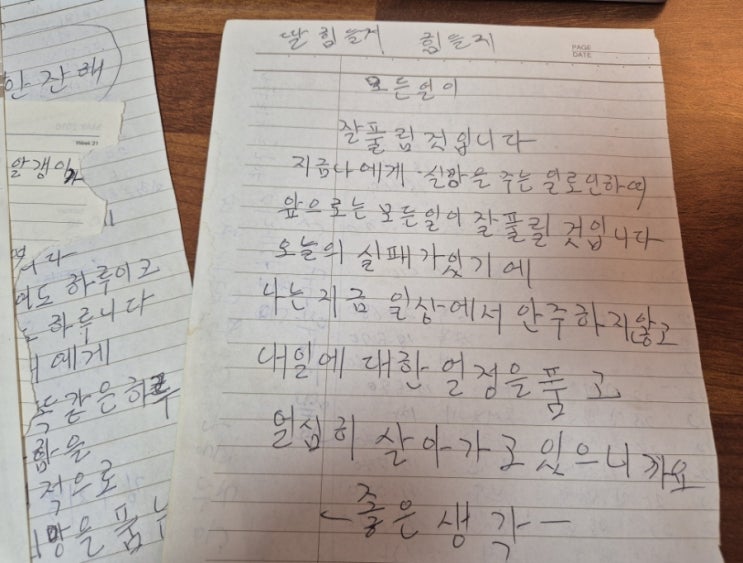 한잔해
알갱이가
하루이고
하루니다
에게
똑같은하루
함을
적으로
품는
딸 힘들지 힘들지
PAGE
DATE
모든일이
잘풀림것입니다
지금나에게 실망을 주는 일로인하여
앞으로는 모든일이 잘풀릴 것입니다
오늘의 실패가있기에
나는지금 일상에서 안주하지않고
내일에 대한 열정을 품고
열심히 살아가고있으니까요
-좋은생각-